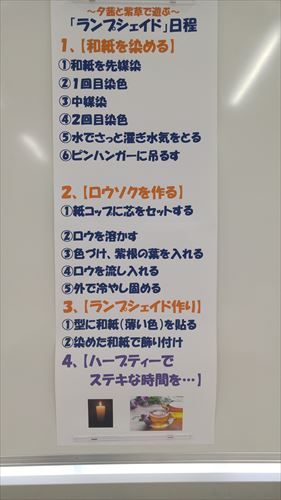 ～夕茜と紫草で遊ぶ～
「ランプシェイド」日程
1、【和紙を染める】
①和紙を先媒染
②1回目染色
③中媒染
④2回目染色
⑤水でさっと濯ぎ水気をとる
⑥ピンハンガーに吊るす
2、【ロウソクを作る】
①紙コップに芯をセットする
②ロウを溶かす
③色づけ、紫根の葉を入れる
④ロウを流し入れる
⑤外で冷やし固める
3、【ランプシェイド作り】
①型に和紙(薄い色)を貼る
②染めた和紙で飾り付け
4、【ハーブティーで
ステキな時間を…】